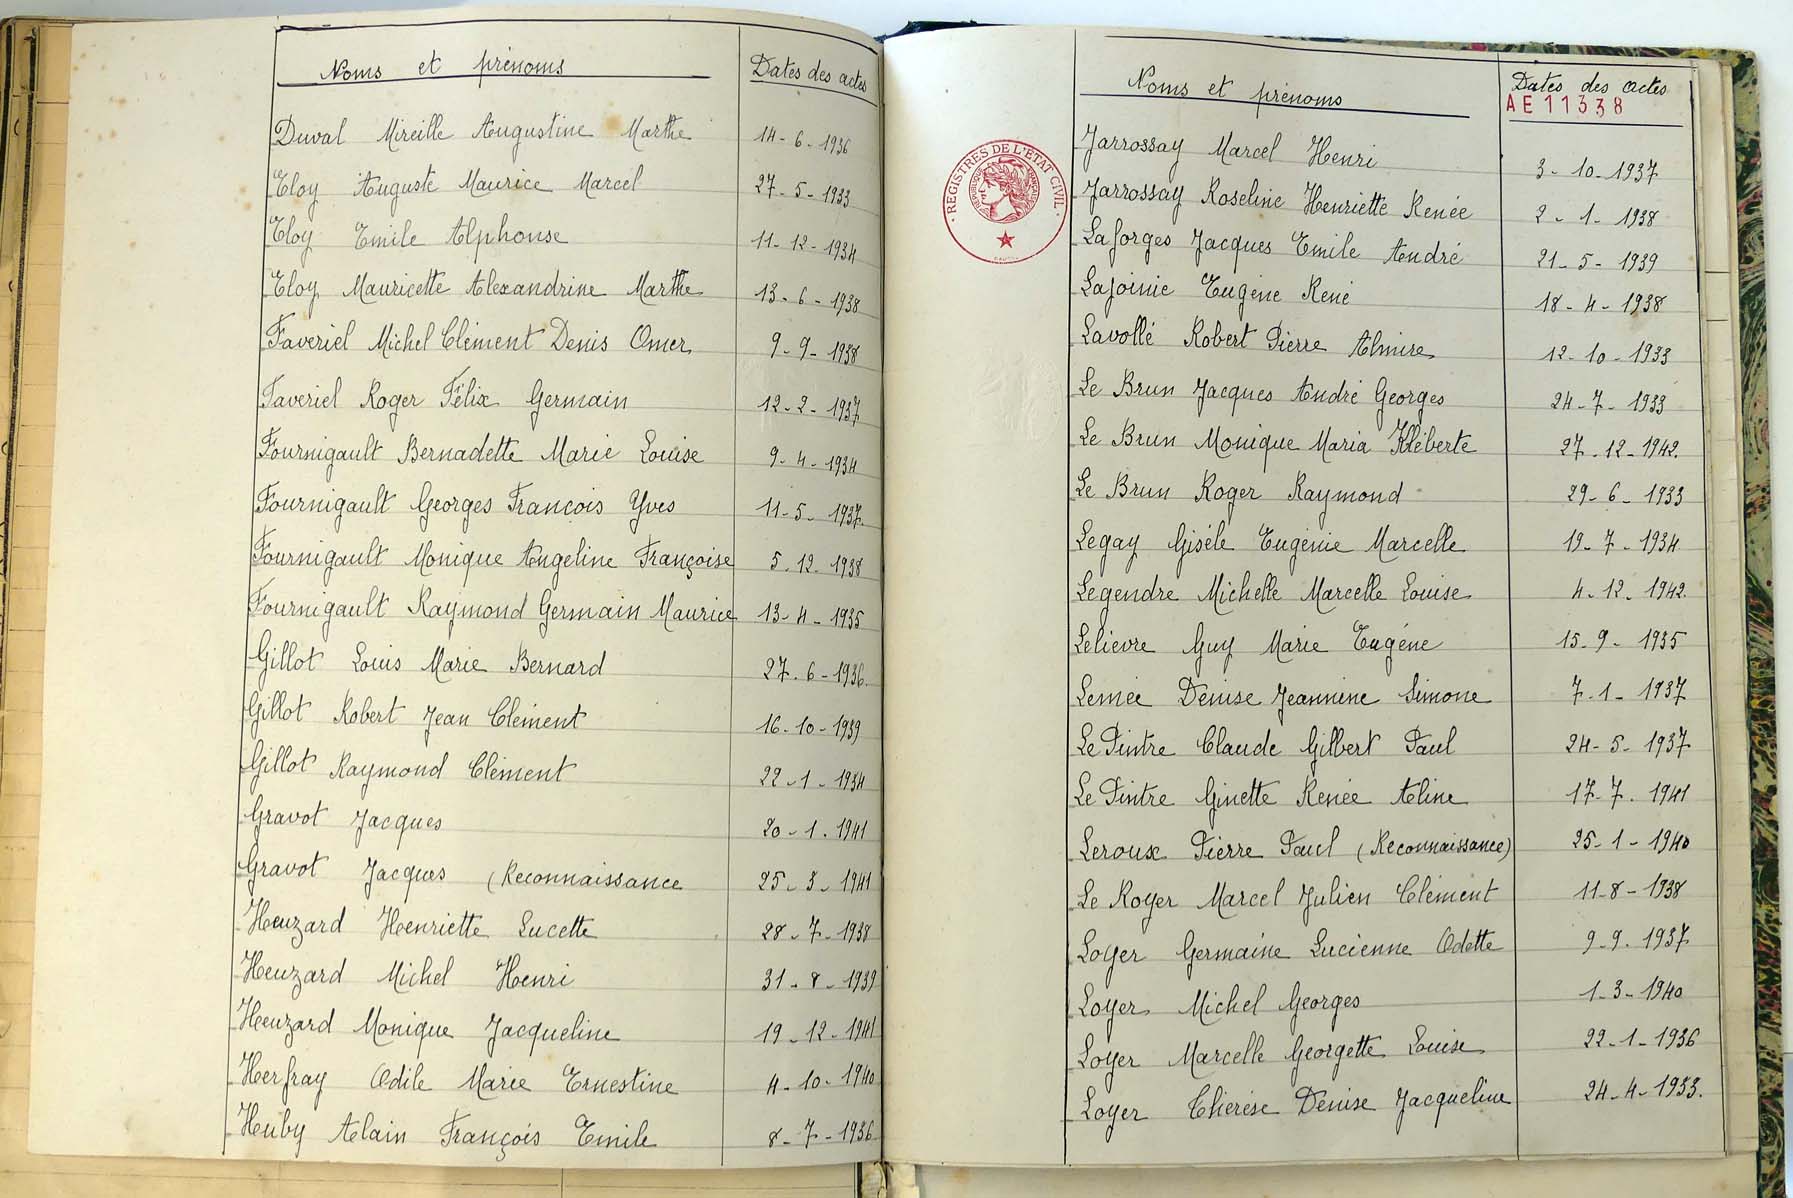 Noms et prénoms Dates des actes
Duval Mireille Augustine Marthe 14-6-1936
Eloy Auguste Maurice Marcel 27-5-1933
Eloy Emile Alphonse 11-12-1934
Eloy Mauricette Alexandrine Marthe 13-6-1938
Faveriel Michel Clément Denis Omer 9-9-1938
Faveriel Roger Félix Germain 12-2-1937
Fournigault Bernadette Marie Louise 9-4-1934
Fournigault Georges François Yves 11-5-1937.
Fournigault Monique Angeline Françoise 5-12-1938
Fournigault Raymond Germain Maurice 13-4-1935
Gillot Louis Marie Bernard 27-6-1936.
Gillot Robert Jean Clément 16-10-1939
Gillot Raymond Clément 22-1-1934
Gravot Jacques 20-1-1941
Gravot Jacques (Reconnaissance 25-3-1941
Heuzard Henriette Lucette 28-7-1938
Heuzard Michel Henri 31-8-1939
Heuzard Monique Jacqueline 19-12-1941
Herfray Odile Marie Ernestine 4-10-1940
Huby Alain François Emile 8-7-1936
REGISTRES DE L'ETAT CIVIL
REPUBLIQUE FRANÇAISE
Noms et prénoms Dates des actes
AE11338
Jarrossay Marcel Henri 3-10-1937
Jarrossay Roseline Henriette Renée 2-1-1938
Laforges Jacques Emile André 21-5-1939
Lajoinie Eugène René 18-4-1938
Lavollé Robert Pierre Almire 12-10-1933
Le Brun Jacques André Georges 24-7-1933
Le Brun Monique Maria Kléberte 27-12-1942.
Le Brun Roger Raymond 29-6-1933
Legay Gisèle Eugénie Marcelle 19-7-1934
Legendre Michelle Marcelle Louise 4-12-1942
Lelièvre Guy Marie Eugène 15-9-1935
Lemée Denise Jeannine Simone 7-1-1937
Le Pintre Claude Gilbert Paul 24-5-1937
Le Pintre Ginette Renée Aline 17-7-1941
Leroux Pierre Paul (Reconnaissance) 25-1-1940
Le Royer Marcel Julien Clément 11-8-1938
Loyer Germaine Lucienne Odette 9-9-1937
Loyer Michel Georges 1-3-1940
Loyer Marcelle Georgette Louise 22-1-1936
Loyer Thérèse Denise Jacqueline 24-4-1933.